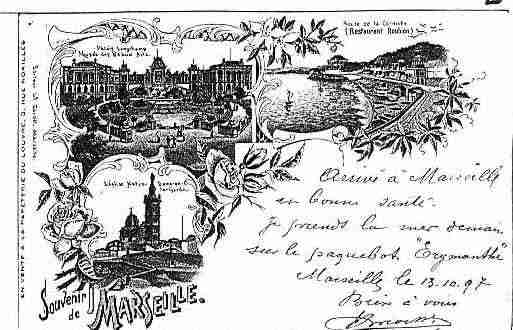 Palais Longchamp
Musée des Beaux Arts
Route de la Corniche
(Restaurant Roubion)
EN VENTE A LA PAPETERIE DU LOUVRE, 3, RUE NOAILLES
L'Eglise Notre Dame de la Garde
Souvenir
de
MARSEILLE.
Arrivé à Marseille
en bonne santé.
Je prends la mer demain
sur le paquebot "Erymanthe"
Marseille le 13.10.97
Bien à vous